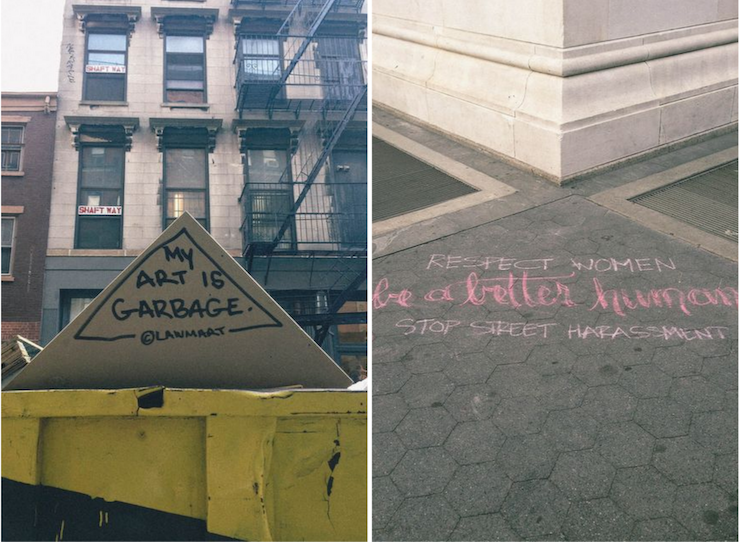 SHAFT WAY
SHAFT WAY
MY
ART IS
GARBAGE.
©LAWMART
RESPECT WOMEN
be a better human
STOP STREET HARASSMENT